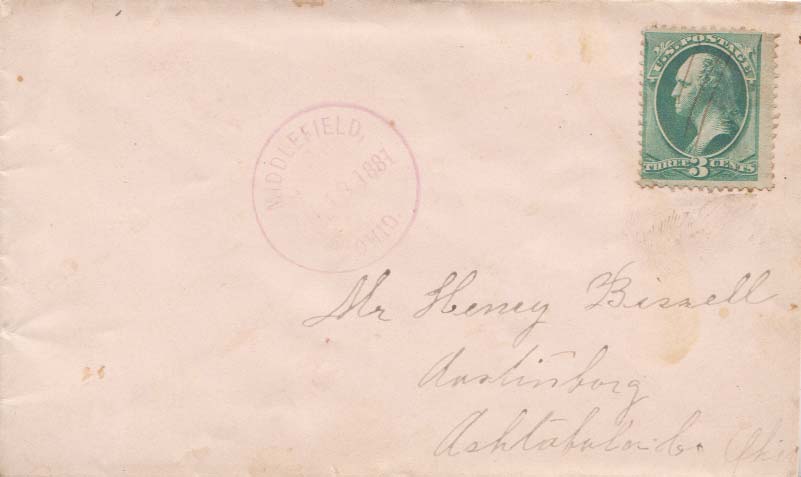 U.S. POSTAGE
THREE 3 CENTS
MIDDLEFIELD,
1881
OHIO.
Mr Henry Bissell
Austinborg
Ashtabula Co. Ohio